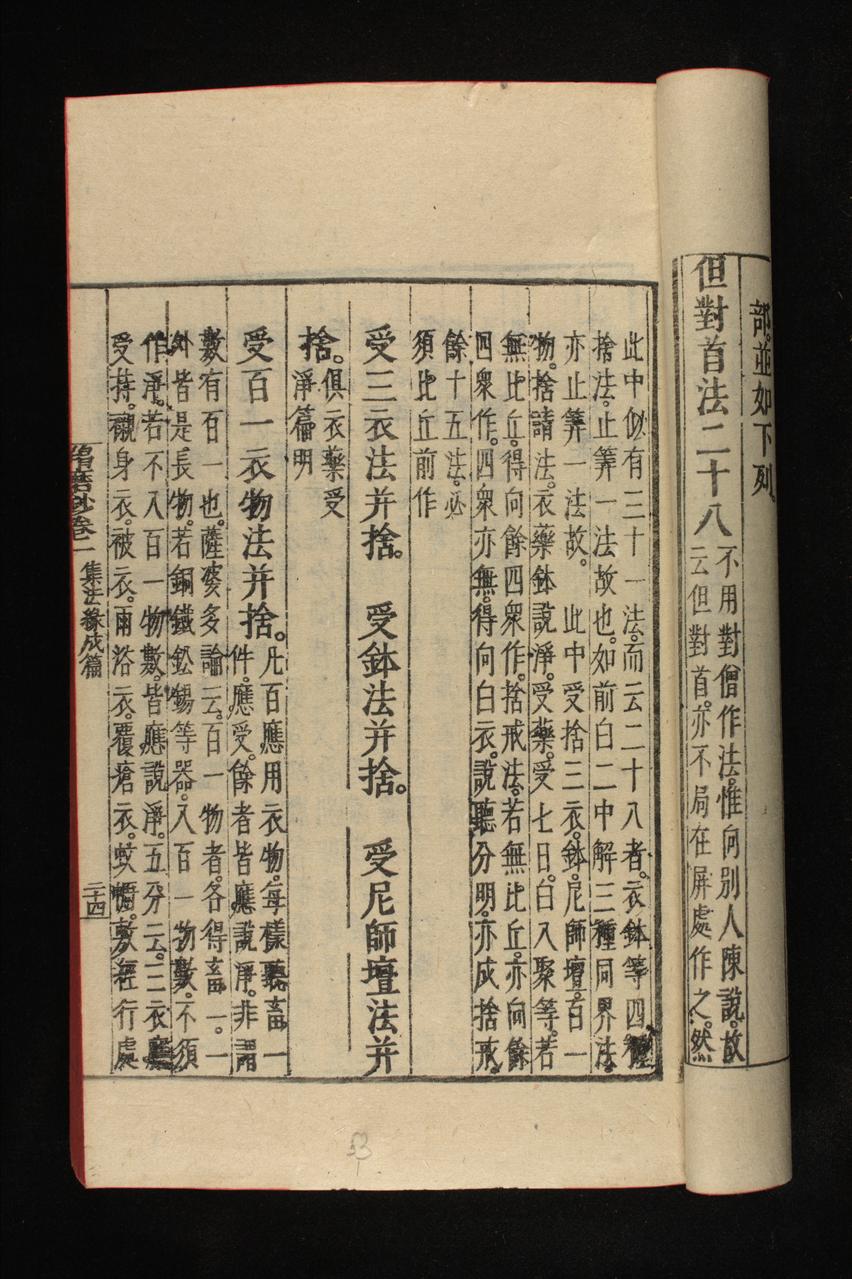 部。並如下列。
但對首法二十八
不用對僧作法。惟向別人陳說。故
云但對首。亦不局在屏處作之。然
此中似有三十一法。而云二十八者。衣鉢等四種
捨法。止筭一法故也。如前白二中解三種同界法。
亦止筭一法故。 此中受捨三衣。鉢。尼師壇。百一
物。捨請法。衣藥鉢說淨。受藥。受七日。白入聚等。若
無比丘。得向餘四衆作。捨戒法。若無比丘。亦向餘
四衆作。四衆亦無。得向白衣。說聽分明。亦成捨戒。
餘十五法。必
須比丘前作
受三衣法并捨。 受鉢法并捨。 受尼師壇法并
捨。
俱衣藥受
淨篇明
受百一衣物法并捨。
凡百應用衣物。每樣聽畜一
件。應受。餘者皆應說淨。非謂
數有百一也。薩婆多論云。百一物者。各得畜一。一
外皆是長物。若銅鐵鈆錫等器。入百一物數。不須
作淨。若不入百一物數。皆應說淨。五分云。三衣應
受持。襯身衣。被衣。雨浴衣。覆瘡衣。蚊幮。敷經行處
隨磨鈔卷一 集法緣成篇 二十四
53